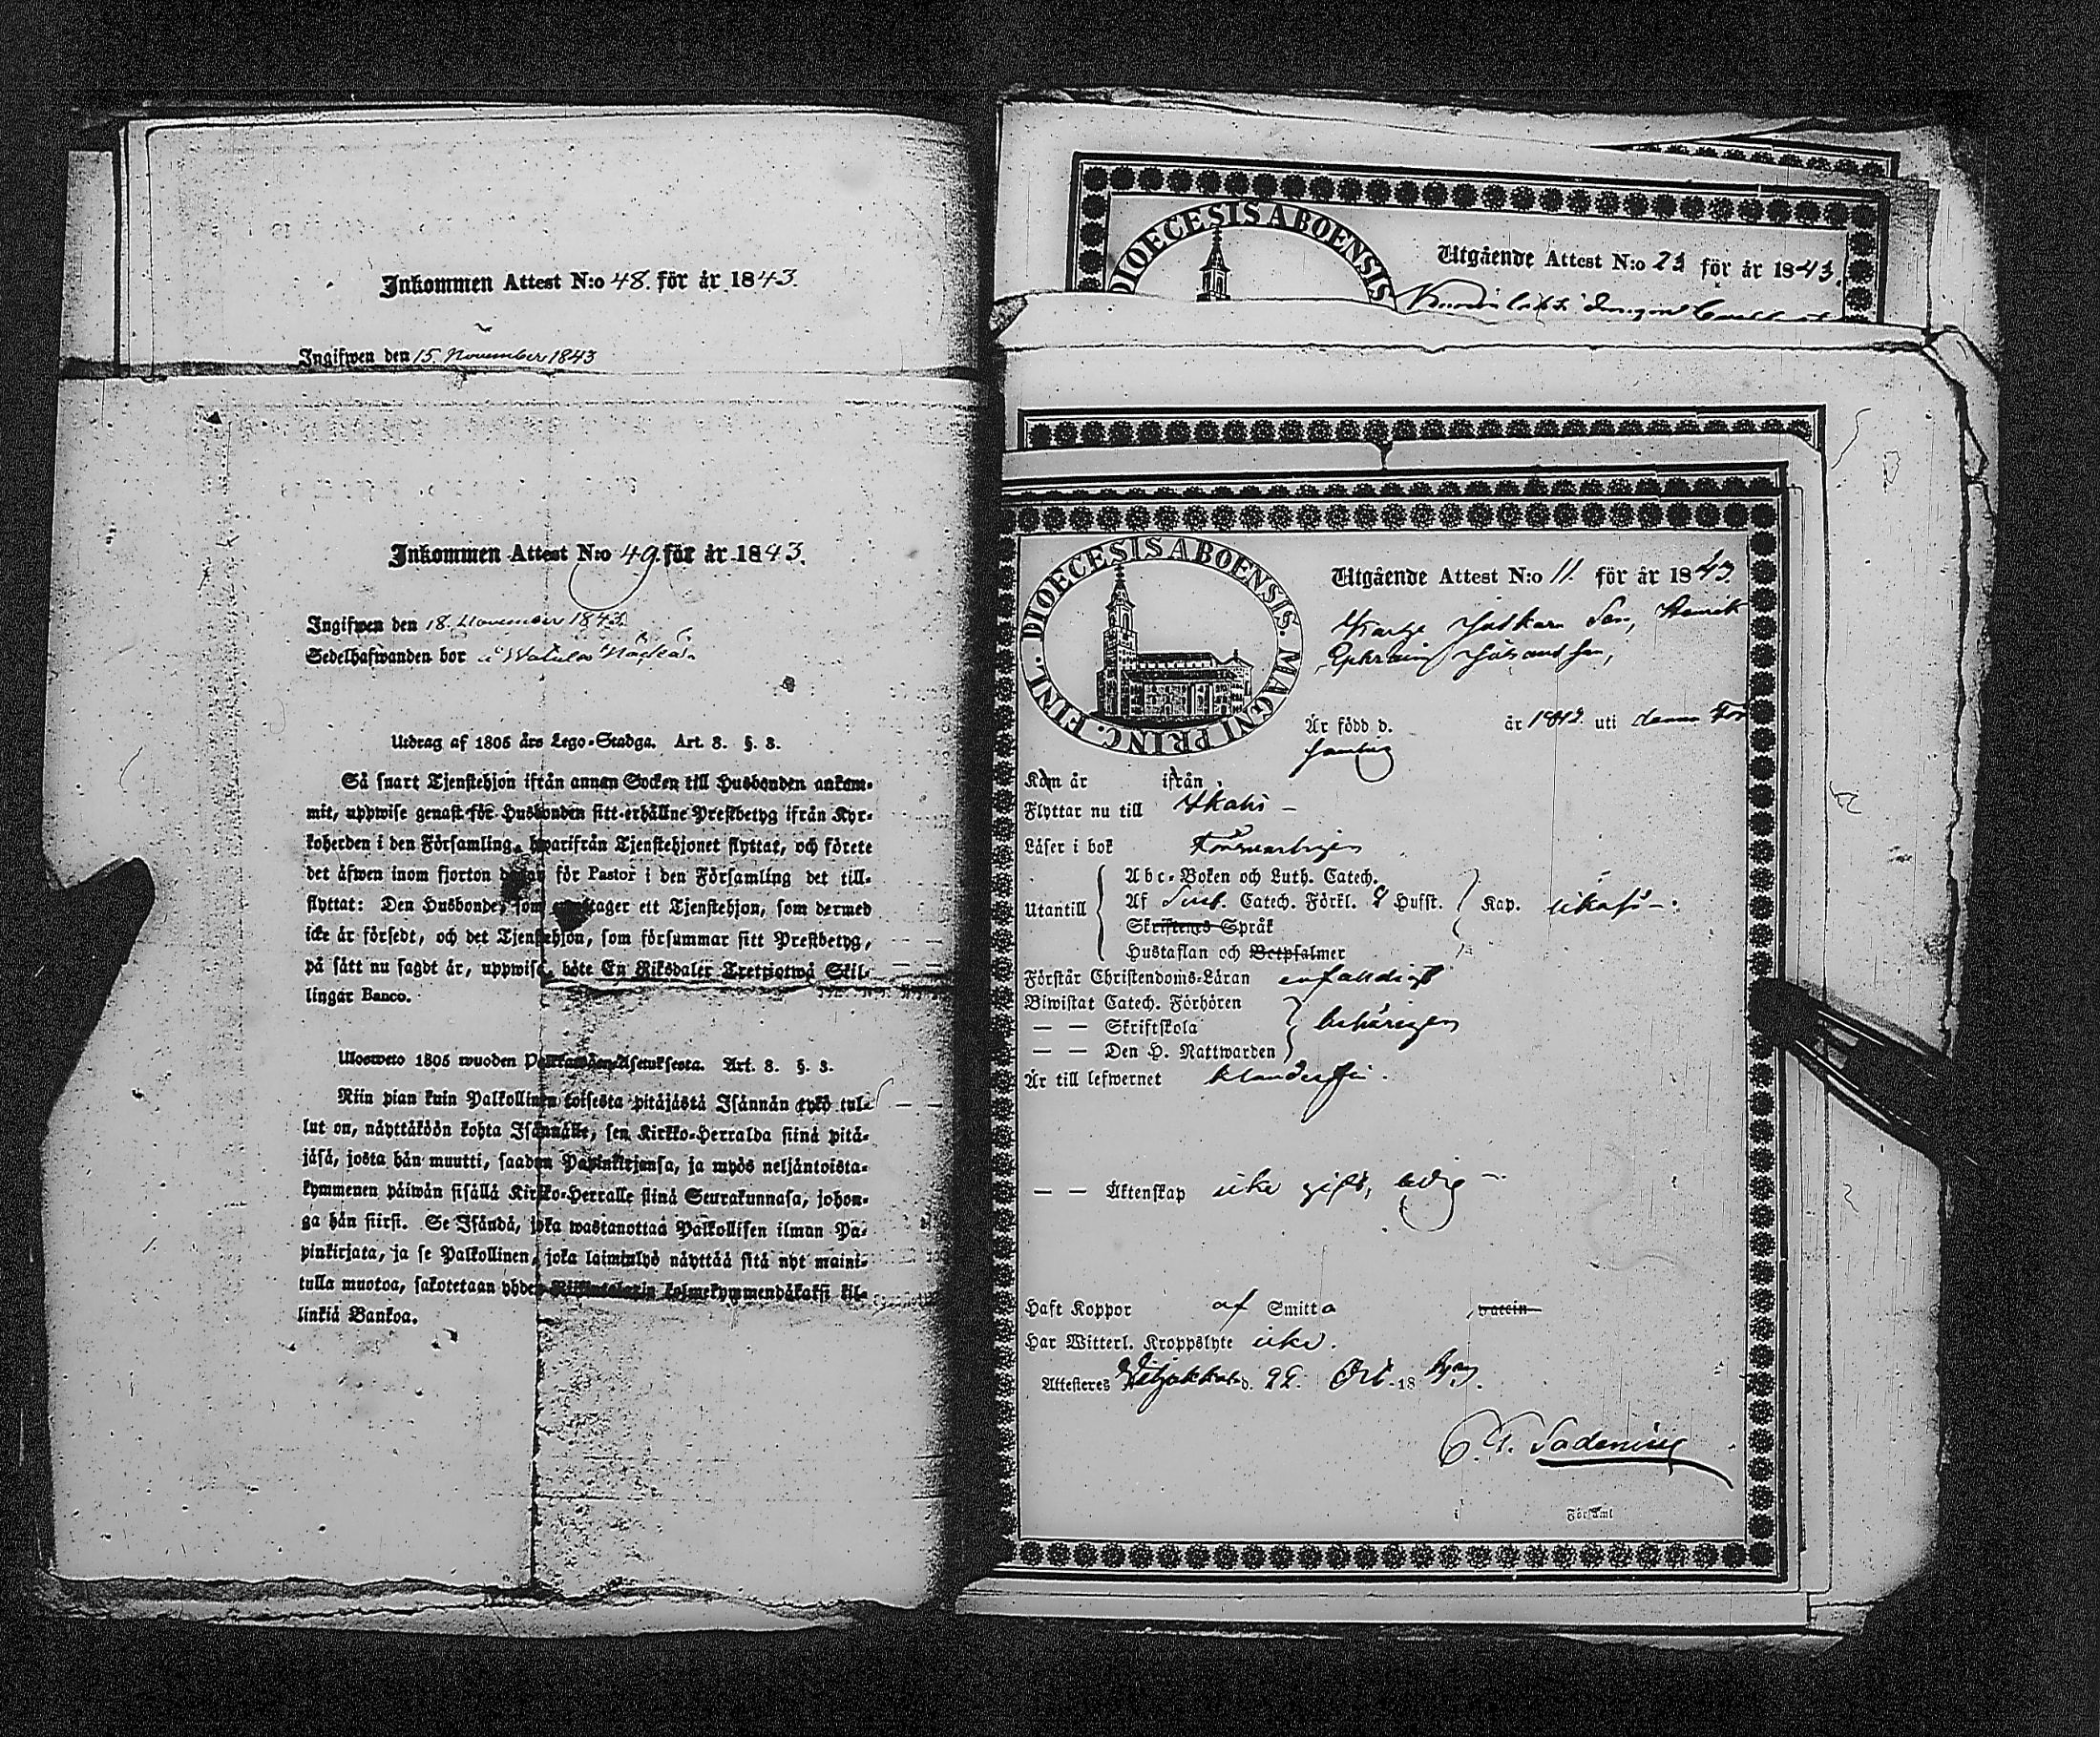 Inkommen Attest N:o 48. för år 1843.
Ingifwen den 15. November 1843
Inkommen Attest N:o 49. för år 1843.
Ingifwen den 18. November 1843.
Sedelhafwanden bor i
Utdrag af 1805 års Lego-Stadga. Art. 3. §. 3.
Så snart Tjenstehjon ifrån annan Socken till Husbonden ankom-
mit, uppwise genast för Husbonden sitt erhållne Prestbetyg ifrån Kyr-
koherden i den Församling, hwarifrån Tjenstehjonet flyttat, och förete
det äfwen inom fjorton dagar för Pastor i den Församling det till-
flyttat: Den Husbonde, som emottager ett Tjenstehjon, som dermed
icke är försedt, och det Tjenstehjon, som försummar sitt Prestbetyg,
på sätt nu sagdt är, uppwisa, böte En Riksdaler Trettiotwå Skil-
lingar Banco.
Ulosweto 1805 wuoden Palkkawäen Asetuksesta. Art. 3. §. 3.
Niin pian kuin Palkollinen toisesta pitäjästä Isännän tykö tul-
lut on, näyttäköön kohta Isännälle, sen Kirkko-Herralda siinä pitä-
jäsä, josta hän muutti, saadun Papinkirjansa, ja myös neljäntoista-
kymmenen päiwän sisällä Kirkko-Herralle siinä Seurakunnasa, johon-
ga hän siirsi. Se Isändä, joka wastanottaa Palkollisen ilman Pa-
pinkirjata, ja se Palkollinen, joka laiminlyö näyttää sitä nyt maini-
tulla muotoa, sakotetaan yhden Riikintalarin kolmekymmendäkaksi kil-
linkiä Bankoa.
DIOECESIS ABOENSIS
Utgående Attest N:o 23 för år 1843.
DIOECESIS ABOENSIS. MAGNI PRINC. FINL.
Utgående Attest N:o 11. för år 1843.
Son, Henrik
Ephraim
Är född d. år 1812. uti denna För
samling
Kom år ifrån
Flyttar nu till Ikalis –
Läser i bok
Utantill
Abc-Boken och Luth. Catech.
Af Sveb. Catech. Förkl. 9 Husst. Kap.
Skriftens Språk
Hustaflan och Botpsalmer
Förstår Christendoms-Läran enfaldigt
Biwistat Catech. Förhören
— — Skriftskola behörigen
— — Den H. Nattwarden
Är till lefwernet klanderfri.
— — Äktenskap icke gift, ledig –
Haft Koppor af Smitta vaccin
Har Witterl. Kroppslyte icke.
Attesteras d. 22. Oct. 1843.
Församl